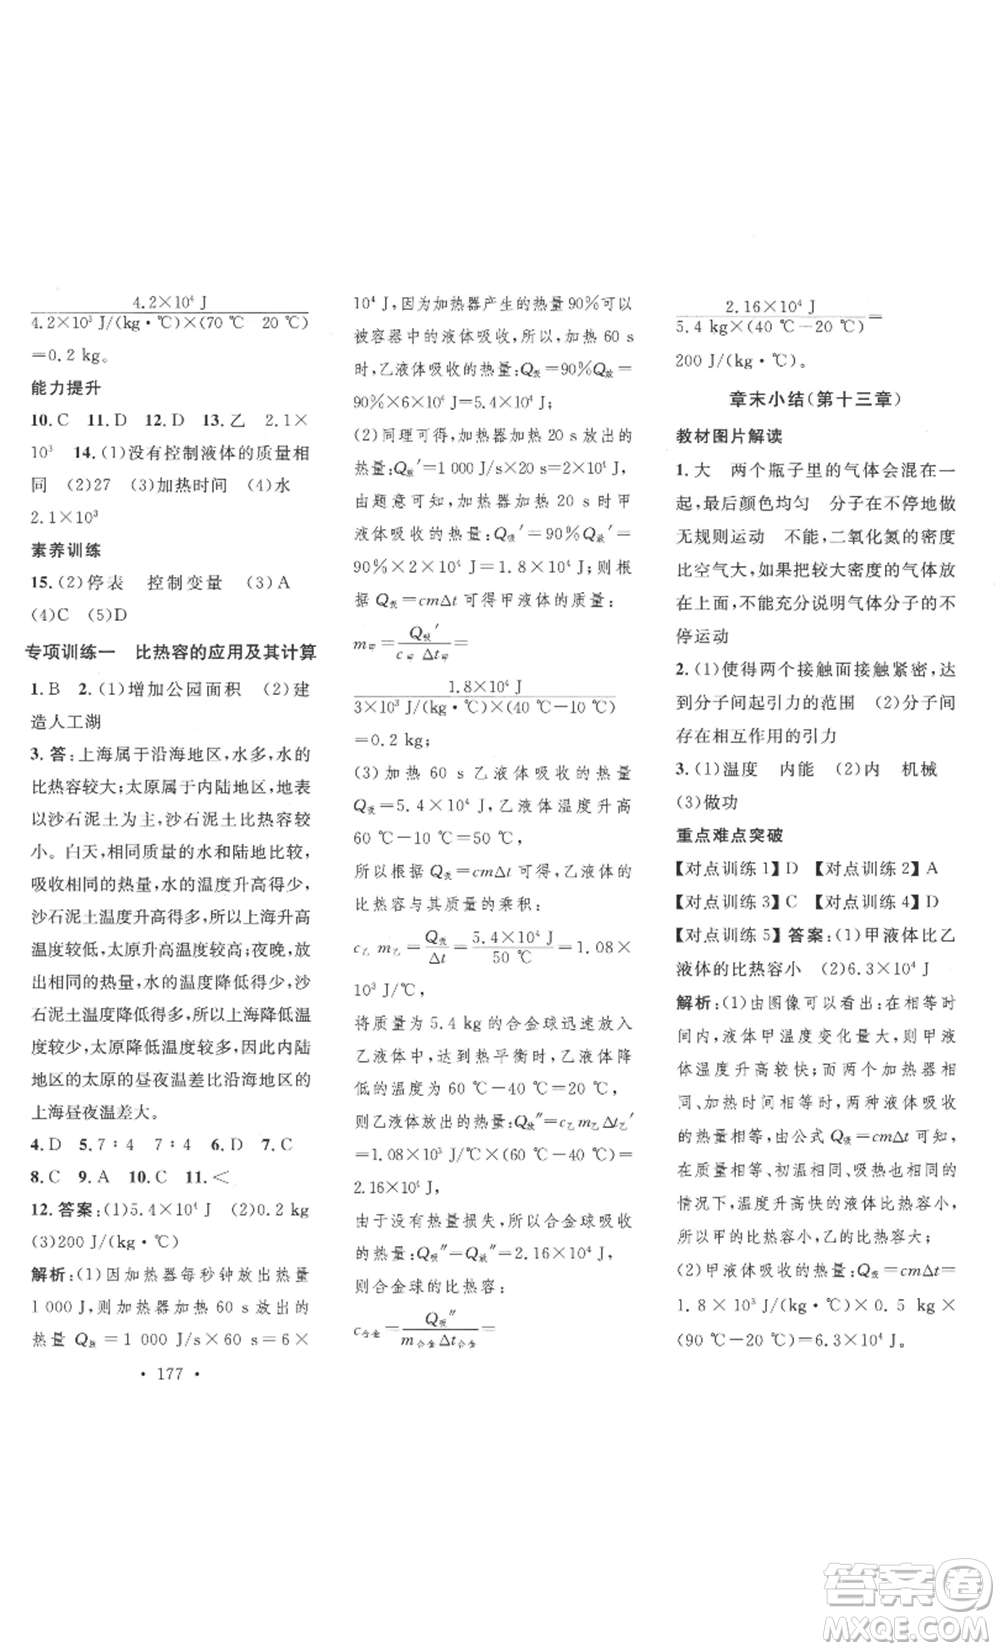 4.2×10⁴ J
4.2×10³ J/(kg·℃)×(70 ℃ 20 ℃)
=0.2 kg。
能力提升
10. C 11. D 12. D 13. 乙 2.1×
10³ 14. (1)没有控制液体的质量相
同 (2)27 (3)加热时间 (4)水
2.1×10³
素养训练
15. (2)停表 控制变量 (3)A
(4)C (5)D
专项训练一 比热容的应用及其计算
1. B 2. (1)增加公园面积 (2)建
造人工湖
3. 答:上海属于沿海地区,水多,水的
比热容较大;太原属于内陆地区,地表
以沙石泥土为主,沙石泥土比热容较
小。白天,同质量的水和陆地比较,
吸收相同的热量,水的温度升得少,
沙石泥土温度升得多,所以上海升高
温度较低,太原升高温度较高;夜晚,
放出相同的热量,水的温度降得少,沙
石泥土温度降得多,所以上海降低温
度较少,太原降低温度较多,因此内陆
地区的太原的昼夜温差比沿海地区的
上海昼夜温差大。
4. D 5. 7∶4 7∶4 6. D 7. C
8. C 9. A 10. C 11. <
12. 答案:(1)5.4×10⁴ J (2)0.2 kg
(3)200 J/(kg·℃)
解析:(1)因加热器每秒钟放出热量
1 000 J,则加热器加热 60 s 放出的
热量 Q放=1 000 J/s×60 s=6×
· 177 ·
10⁴ J,因为加热器产生的热量90%可以
被容器中的液体吸收,所以,加热 60 s
时,乙液体吸收的热量:Q吸=90%Q放=
90%×6×10⁴ J=5.4×10⁴ J;
(2)同理可得,加热器加热 20 s 放出的
热量:Q放′=1 000 J/s×20 s=2×10⁴ J,
由题意可知,加热器加热 20 s 时甲
液体吸收的热量:Q吸′=90%Q放′=
90%×2×10⁴ J=1.8×10⁴ J,则根
据 Q吸=cmΔt 可得甲液体的质量:
m甲=Q吸′/(c甲 Δt甲)=
1.8×10⁴ J
3×10³ J/(kg·℃)×(40 ℃-10 ℃)
=0.2 kg;
(3)加热 60 s 乙液体吸收的热量
Q吸=5.4×10⁴ J,乙液体温度升高
60 ℃-10 ℃=50 ℃,
所以,根据 Q吸=cmΔt 可得,乙液体的
比热容与其质量的乘积:
c乙 m乙=Q吸/Δt=5.4×10⁴ J/50 ℃=1.08×
10³ J/℃,
将质量为 5.4 kg 的合金球迅速放入
乙液体中,达到热平衡时,乙液体降
低的温度为 60 ℃-40 ℃=20 ℃,
则乙液体放出的热量:Q放″=c乙 m乙 Δt乙′
=1.08×10³ J/℃×20 ℃=
2.16×10⁴ J,
由于没有热量损失,所以合金球吸收
的热量:Q吸″=Q放″=2.16×10⁴ J,
则合金球的比热容:
c合金=Q吸″/(m合金 Δt合金)=
2.16×10⁴ J
5.4 kg×(40 ℃-20 ℃)=
200 J/(kg·℃)。
章末小结(第十三章)
教材图片解读
1. 大 两个瓶子里的气体会混在一
起,最后颜色均匀 分子在不停地做
无规则运动 不能,二氧化氮的密度
比空气大,如果把较大密度的气体放
在上面,不能充分说明气体分子的不
停运动
2. (1)使得两个接触面接触紧密,达
到分子间起引力的范围 (2)分子间
存在相互作用的引力
3. (1)温度 内能 (2)内 机械
(3)做功
重点难点突破
【对点训练 1】D 【对点训练 2】A
【对点训练 3】C 【对点训练 4】D
【对点训练 5】答案:(1)甲液体比乙
液体的比热容小 (2)6.3×10⁴ J
解析:(1)由图像可以看出:在相等时
间内,液体甲温度变化量大,则甲液
体温度升高较快;而两个加热器相
同、加热时间相等,所以液体吸收
的热量相等,由公式 Q吸=cmΔt 可知,
在质量相等、初温和吸热也相同的
情况下,温度升高快的液体比热容小,
所以甲的比热容小,乙的比热容大;
(2)甲液体吸收的热量:Q吸=cmΔt=
1.8 × 10³ J/(kg·℃) × 0.5 kg ×
(90 ℃-20 ℃)=6.3×10⁴ J。
答案圈
MXQE.COM